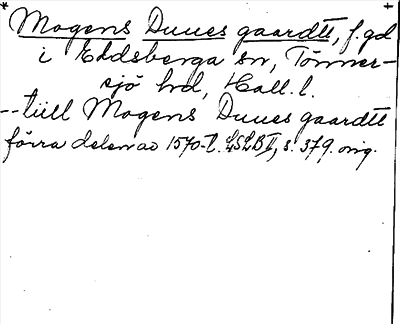 Mogens Duues gaardtt, f. gd
i Eldsberga sn, Tönner-
sjö hd, Hall. l.
-- tiill Mogens Duues gaardtt
förra delen av 1570-t. LSLB II, s. 379. orig.